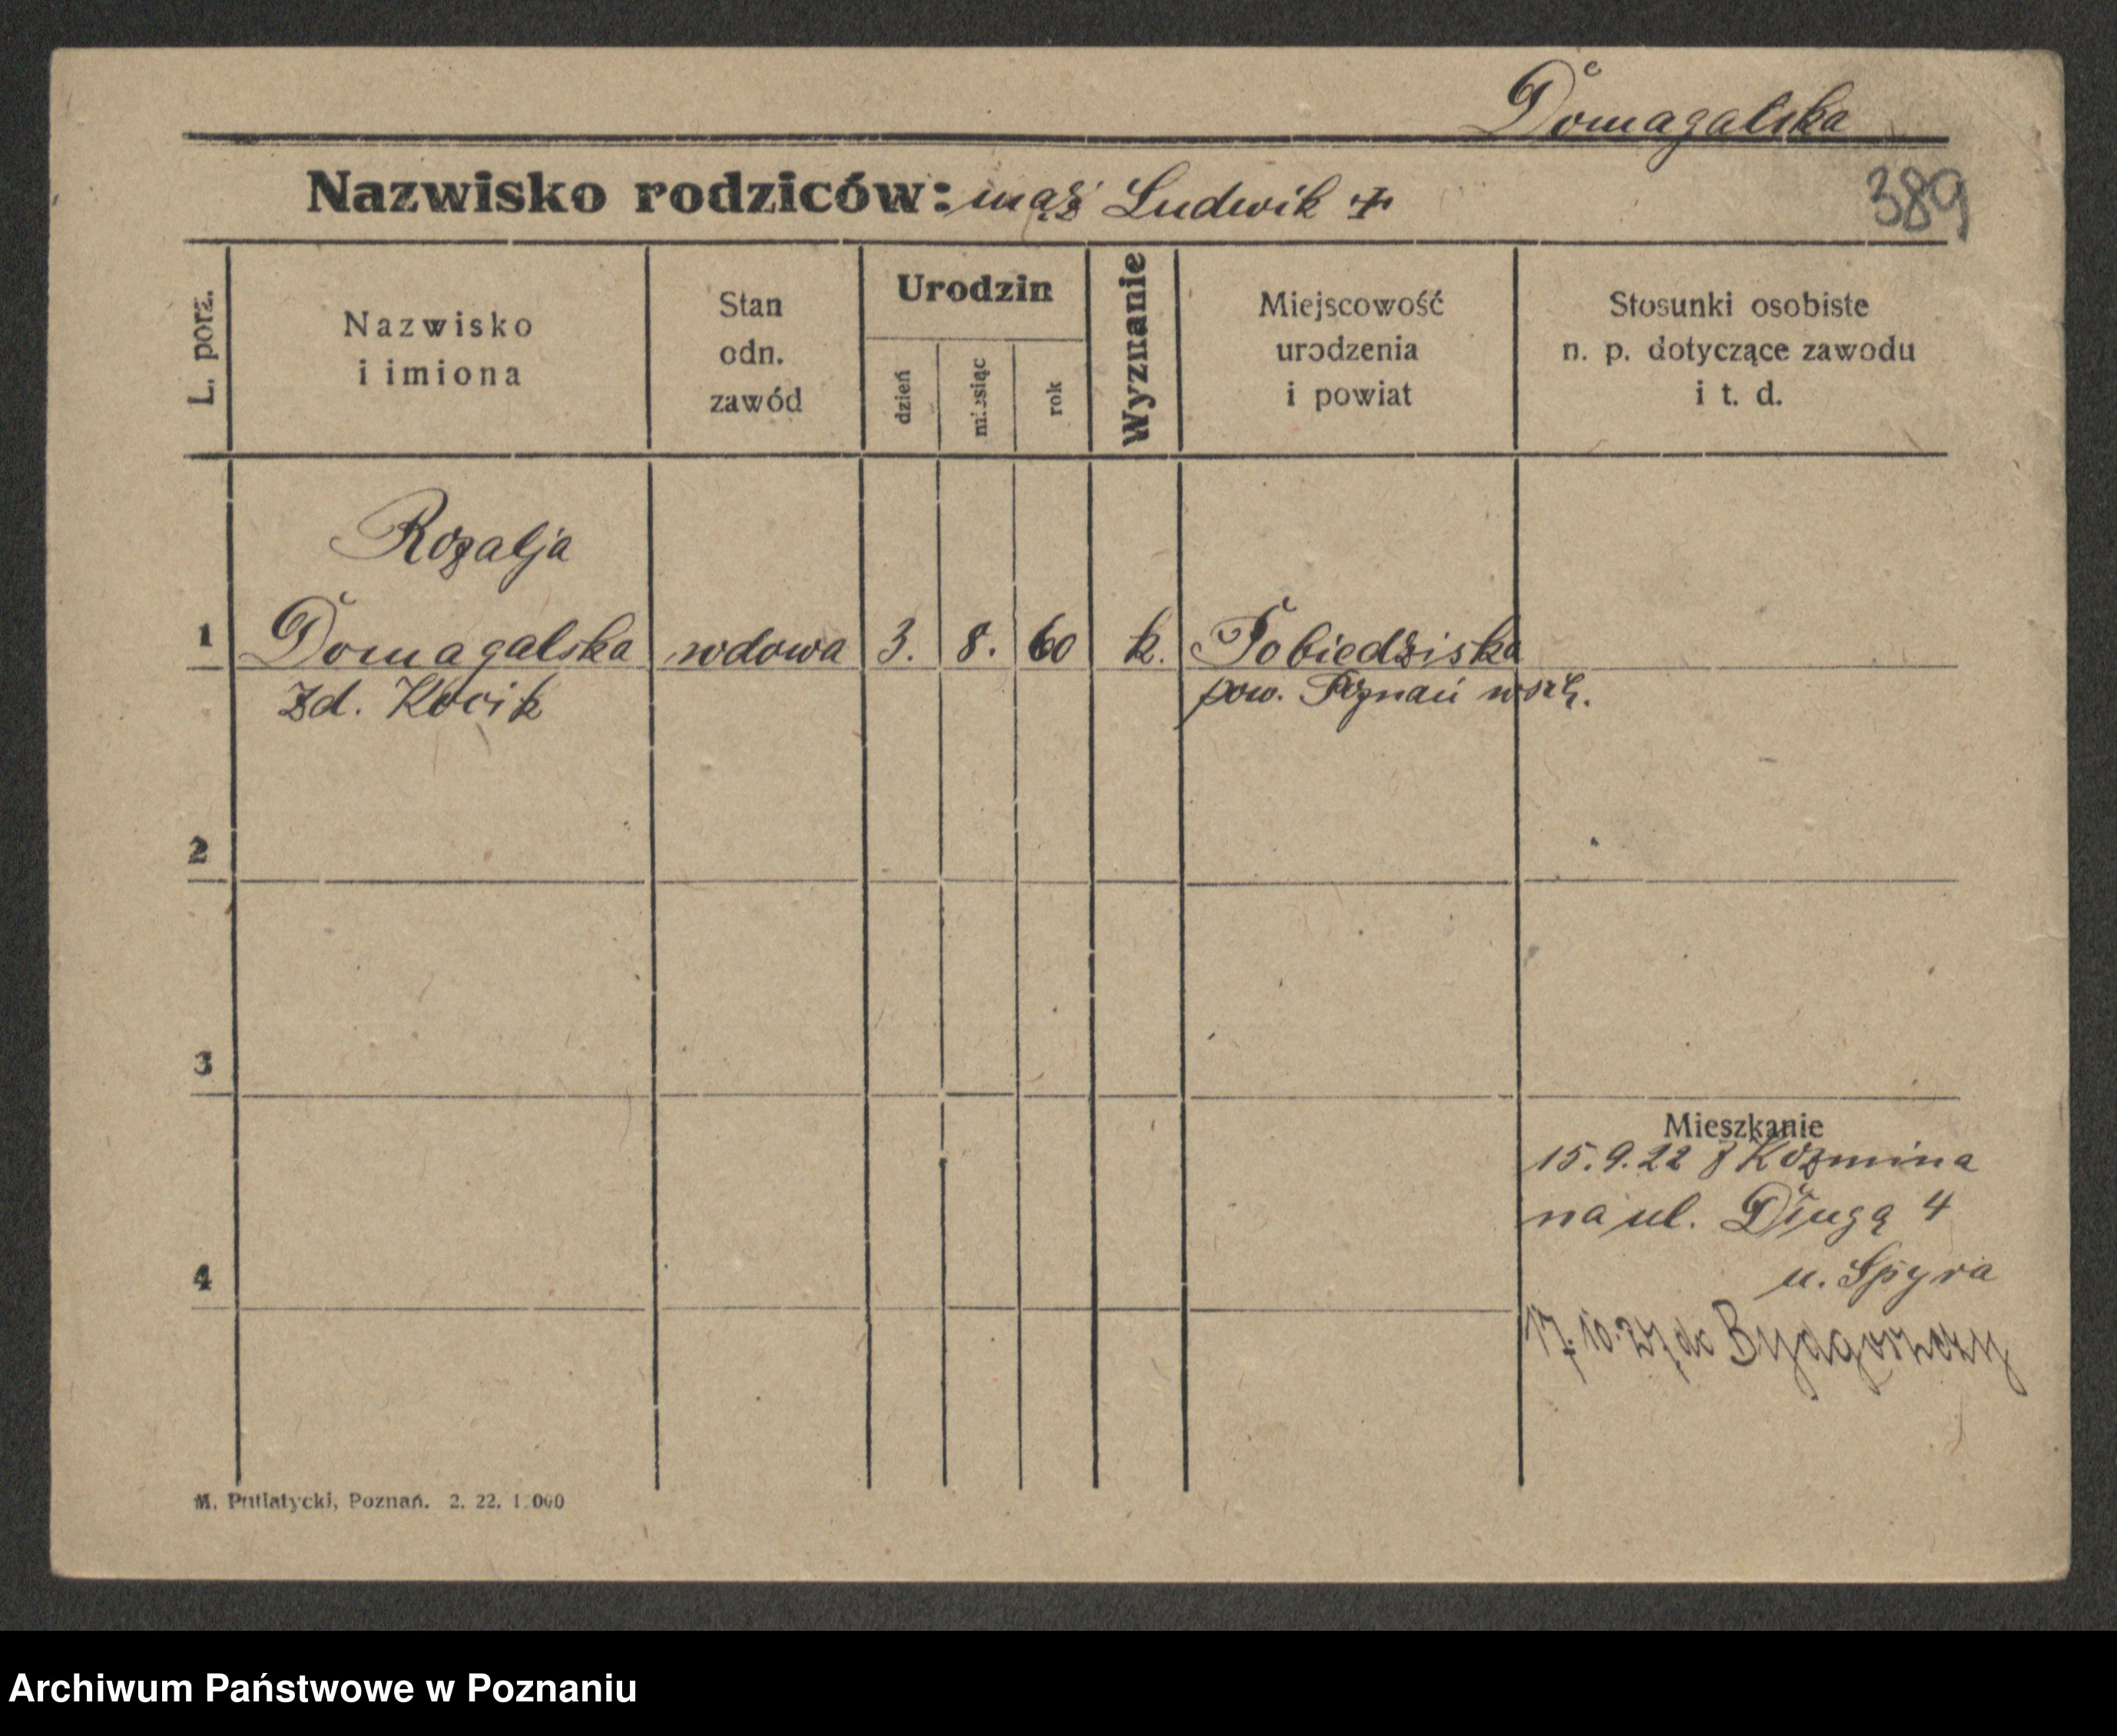 Domagalska
Nazwisko rodziców: mąż Ludwik +
389
L. porz.
Nazwisko
i imiona
Stan
odn.
zawód
Urodzin
dzień
miesiąc
rok
Wyznanie
Miejscowość
urodzenia
i powiat
Stosunki osobiste
n. p. dotyczące zawodu
i t. d.
Rozalja
1 Domagalska wdowa 3. 8. 60 k. Pobiedziska
zd. Kocik pow. Poznań wsch.
2
3
Mieszkanie
15.9.22 z Koźmina
na ul. Długą 4
4
u. Spyra
17.10.27 do Bydgoszczy
M. Putiatycki, Poznań. 2. 22. 1.000
Archiwum Państwowe w Poznaniu